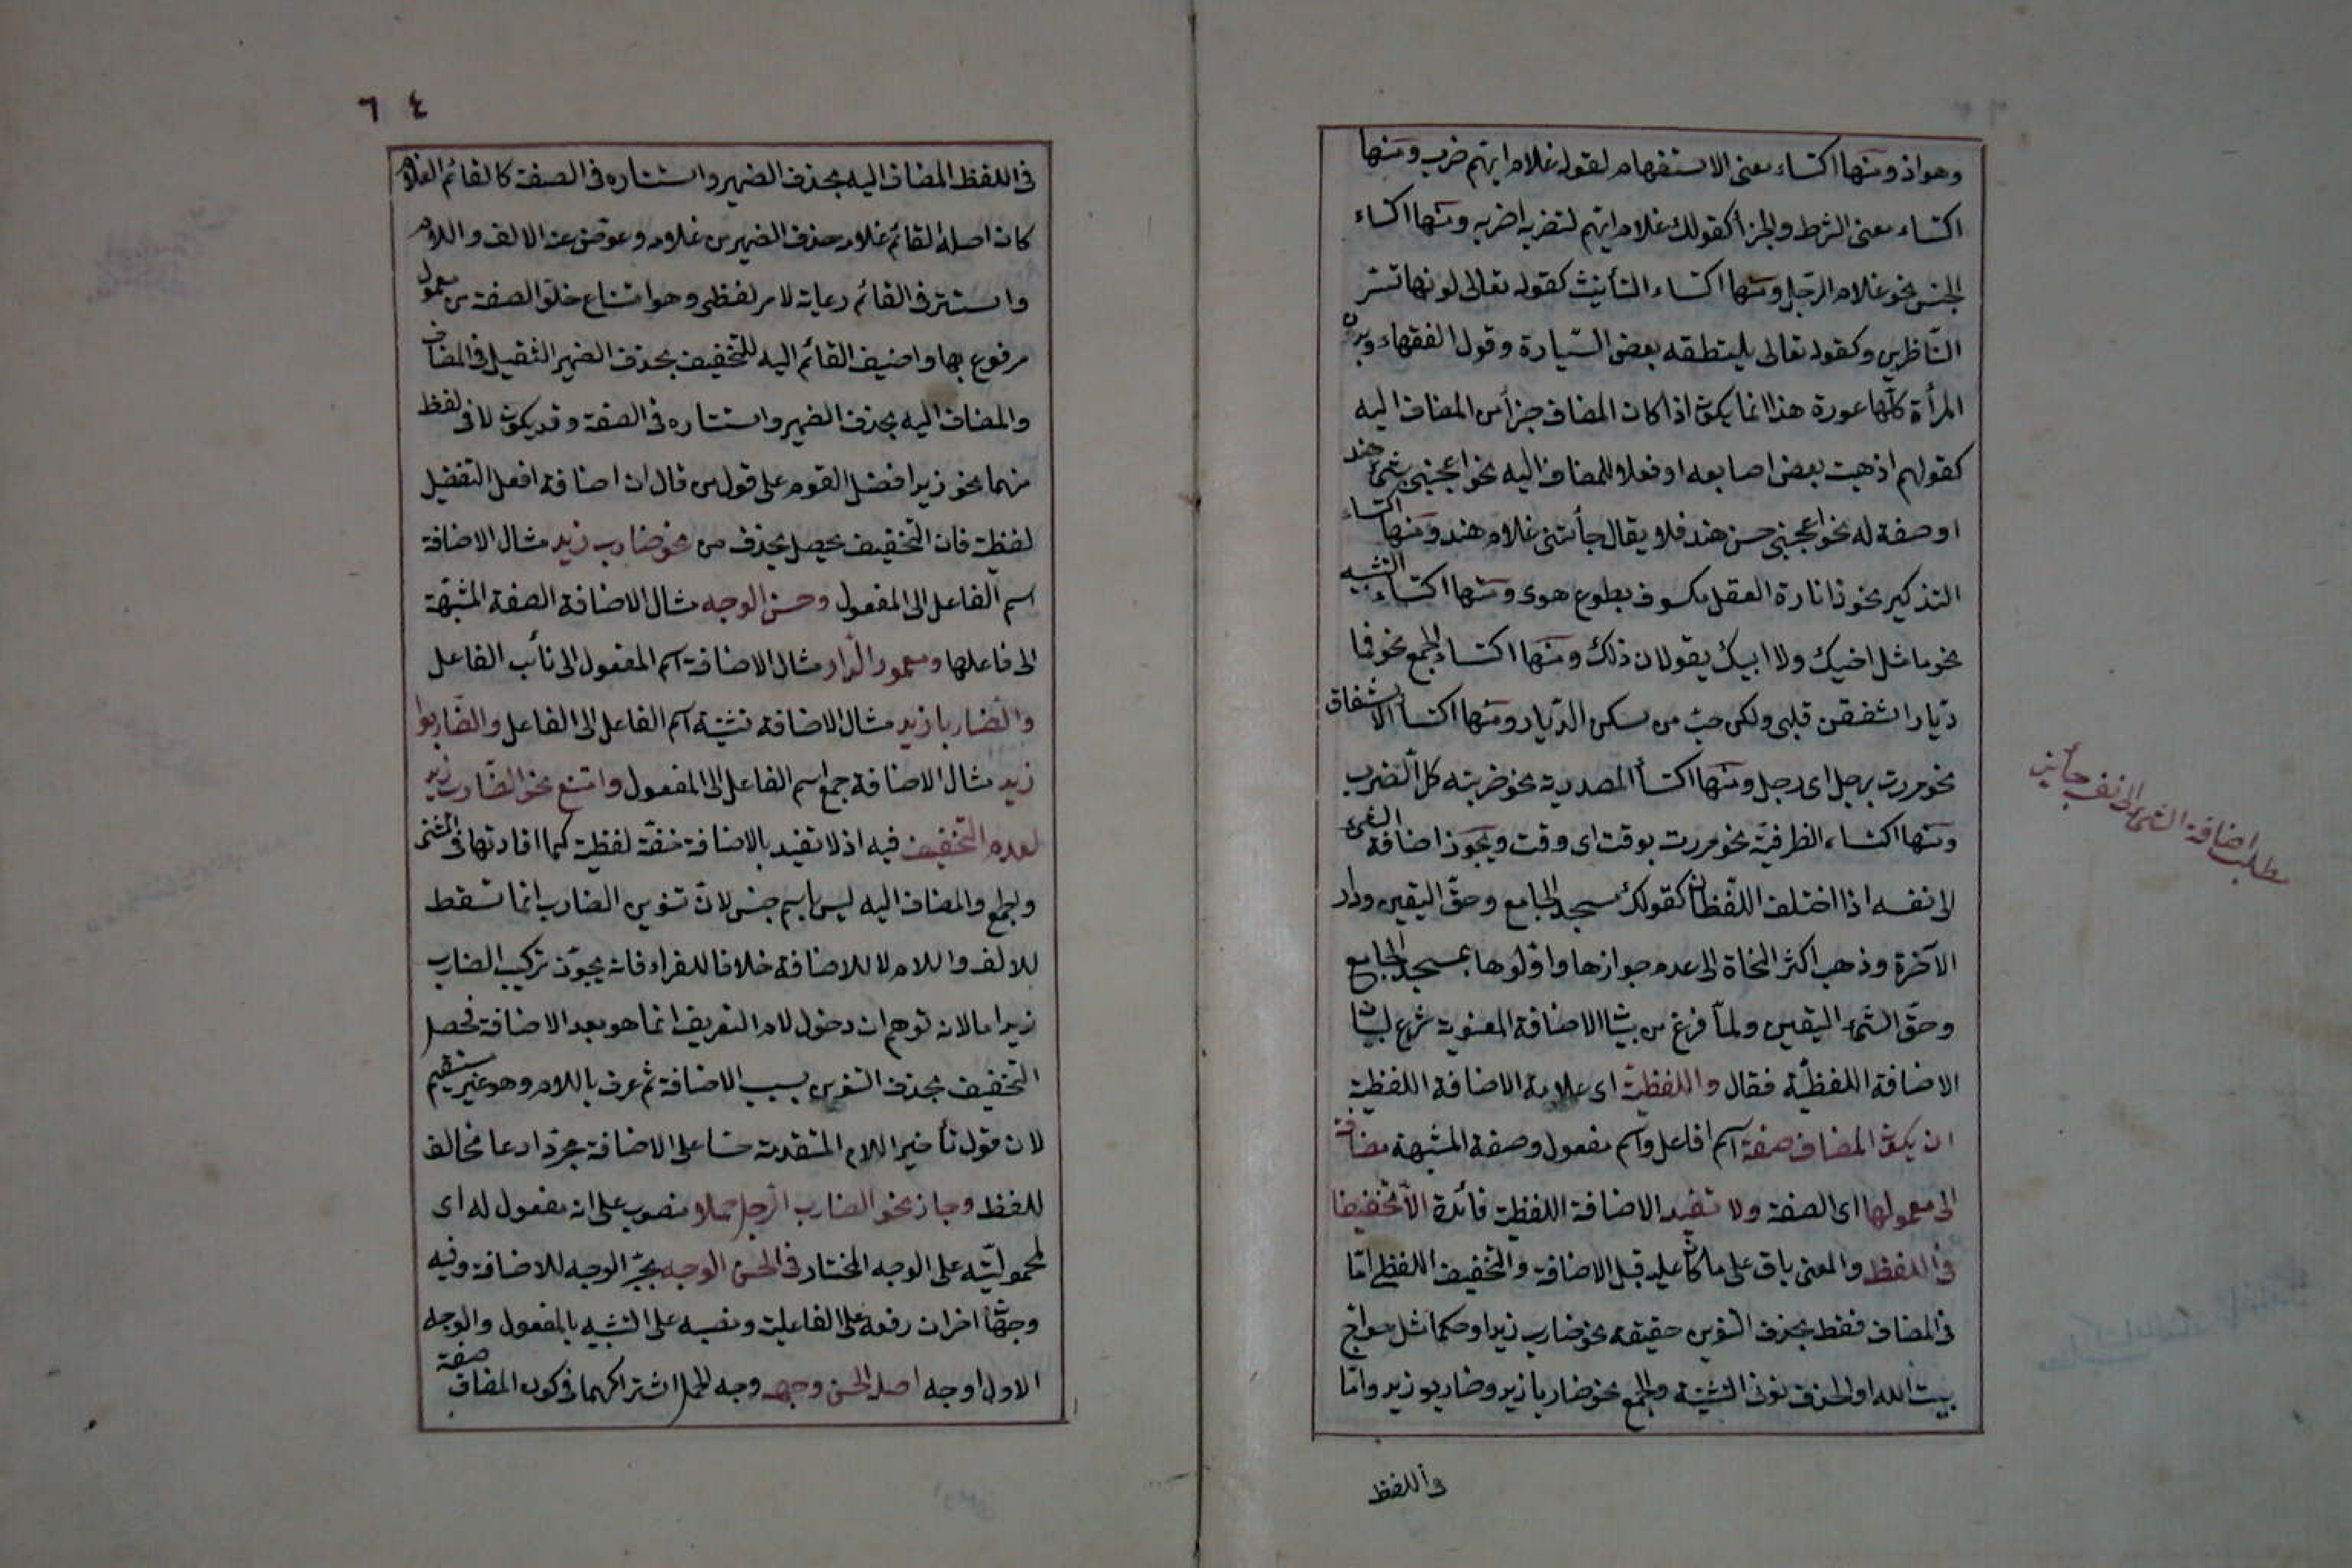 وهو اذ ومنها اكتساء معنى الاستفهام لقوله غلام ايهم ضرب ومنها
اكتساء معنى الشرط والجزأ كقولك غلام ايهم لتضربه اضربه ومنها اكتساء
الجنس نحو غلام الرجل ومنها اكتساء التأنيث كقوله تعالى لونها تسر
الناظرين وكقوله تعالى يلتقطه بعض السيارة وقول الفقهاء وبدن
المرأة كلها عورة هذا انما يكون اذا كان المضاف جزأ من المضاف اليه
كقولهم اذهبت بعض اصابعه او فعلا للمضاف اليه نحو اعجبني مشى هند
او صفة له نحو اعجبني حسن هند فلا يقال جأتنى غلام هند ومنها اكتساء
التذكير نحو انارة العقل مكسوف بطوع هوى ومنها اكتساء التثنيه
نحو ما مثل اخيك ولا ابيك يقولان ذلك ومنها اكتساء الجمع نحو فما
ديار اشغفن قلبى ولكن حب من سكن الديار ومنها اكتسا الاشفاق
نحو مررت برجل اى رجل ومنها اكتسأ المصدرية نحو ضربته كل الضرب
ومنها اكتساء الظرفية نحو مررت بوقت اى وقت ويجوز اضافة الشئ
لا نفسه اذا اختلف اللفظان كقولك مسجد الجامع وحق اليقين ودار
الآخرة وذهب اكثر النحاة الى عدم جوازها واولوها بمسجد الجامع
وحق الشئ اليقين ولما فرغ من بيان الاضافة المعنوية شرع لبيان
الاضافة اللفظية فقال واللفظية اى علامة الاضافة اللفظية
ان يكون المضاف صفة اسم افاعل واسم مفعول وصفة المشبهة مضافة
الى معمولها اى الصفة ولا تفيد الاضافة اللفظية فائدة الا تخفيفا
فى اللفظ والمعنى باق على ما كان عليه قبل الاضافة والتخفيف اللفظى اما
فى المضاف فقط بحذف التنوين حقيقة نحو ضارب زيد او حكما مثل حواج
بيت الله او لحذف نون التثنية والجمع نحو ضاربا زيد وضاربو زيد واما
فى اللفظ
مطلب اضافة الشئ الى نفسه جائز
٦٤
فى اللفظ المضاف اليه بحذف الضمير واستتاره فى الصفة كالقائم الغلام
كان اصله القائم غلامه حذف الضمير من غلامه وعوض عنه الالف واللام
واستتر فى القائم رعاية لامر لفظى وهو امتناع خلو الصفة من معمول
مرفوع بها واضيف القائم اليه للتخفيف بحذف الضمير الثقيل فى المضاف
والمضاف اليه بحذف الضمير واستتاره فى الصفة وقد يكون لا فى لفظ
منهما نحو زيد افضل القوم على قول من قال ان اضافة افعل التفضيل
لفظية فان التخفيف يحصل بحذف من نحو ضارب زيد مثال الاضافة
اسم الفاعل الى المفعول وحسن الوجه مثال الاضافة الصفة المشبهة
الى فاعلها ومعمور الدار مثال الاضافة اسم المفعول الى نائب الفاعل
والضاربا زيد مثال الاضافة تثنية اسم الفاعل الى الفاعل والضاربوا
زيد مثال الاضافة جمع اسم الفاعل الى المفعول وامتنع نحو الضارب زيد
لعدم التخفيف فيه اذ لا تفيد بالاضافة خفة لفظية كما افادتها فى المثنى
ولجمع والمضاف اليه ليس باسم جنس لان تنوين الضارب انما تسقط
للالف واللام لا للاضافة خلافا للفراء فانه يجوز تركيب الضارب
زيد اما لانه توهم ان دخول لام التعريف انما هو بعد الاضافة فحصل
التخفيف بحذف التنوين بسبب الاضافة ثم عرف باللام وهو غير مستقيم
لان قول تأخير اللام المتقدمة حسا على الاضافة مجرد ادعا مخالف
للفظ وجاز نحو الضارب الرجل حملا منصوب على انه مفعول له اى
لمحموليته على الوجه المختار فى الحسن الوجه بجر الوجه للاضافة وفيه
وجهان اخران رفعه على الفاعلية ونصبه على التشبيه بالمفعول والوجه
الاول اوجه اصله الحسن وجهه وجه الحمل اشتراكهما فى كون المضاف صفة